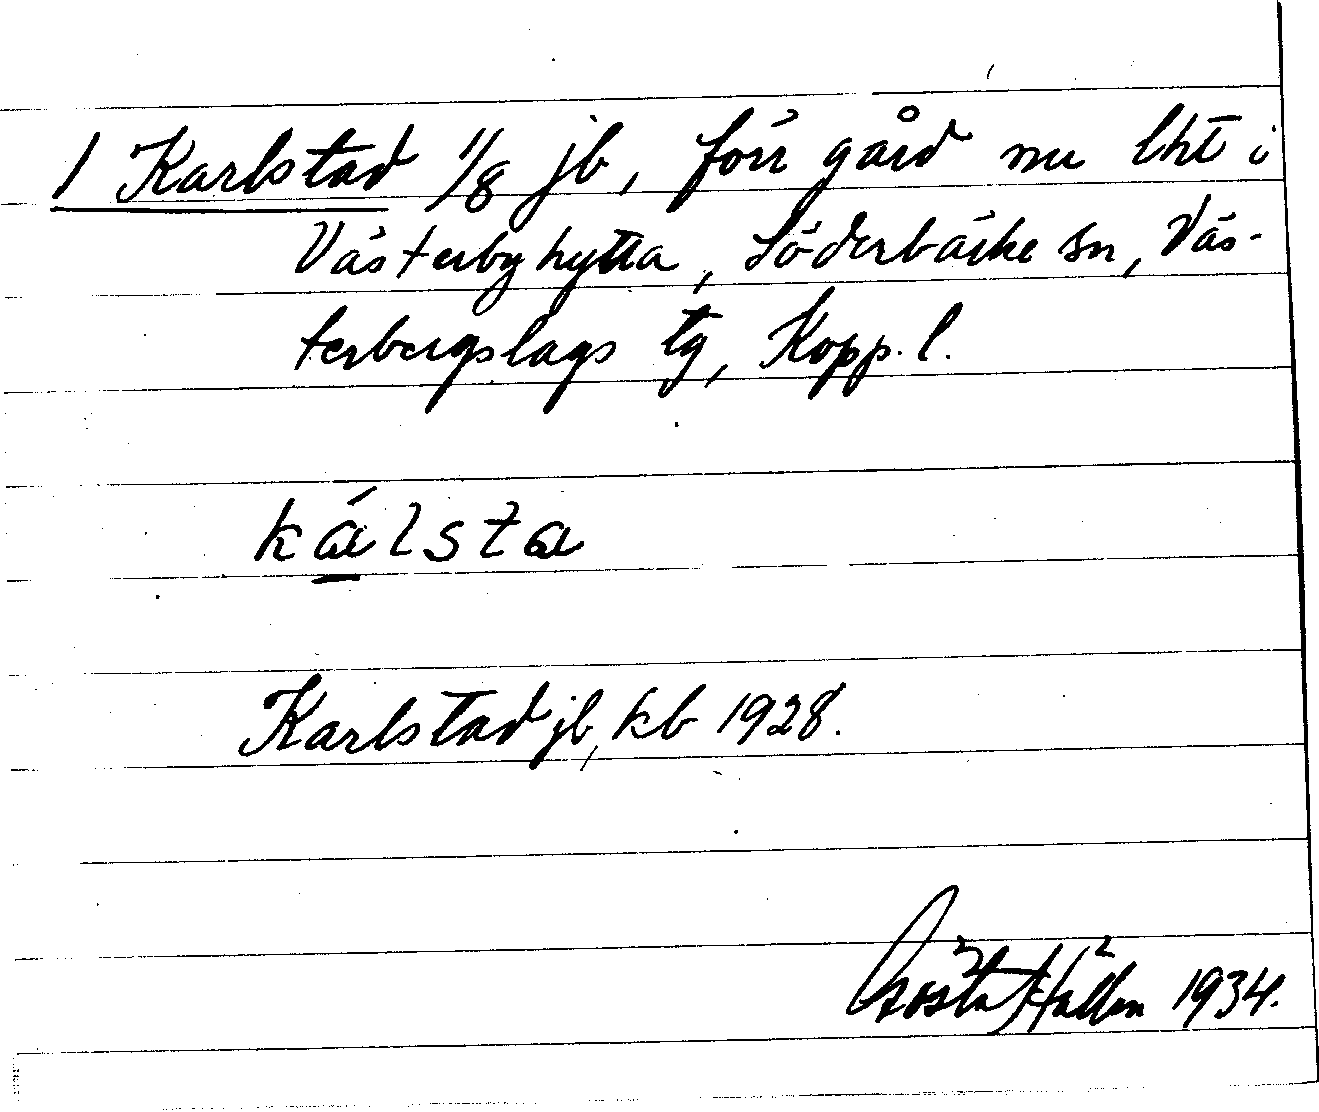 1 Karlstad 1/8 jb, förr gård nu lht i
Västerbyhytta, Söderbärke sn, Väs-
terbergslags tg, Kopp. l.
kálsta
Karlstad jb, kb 1928.
Gösta Hallén 1934.